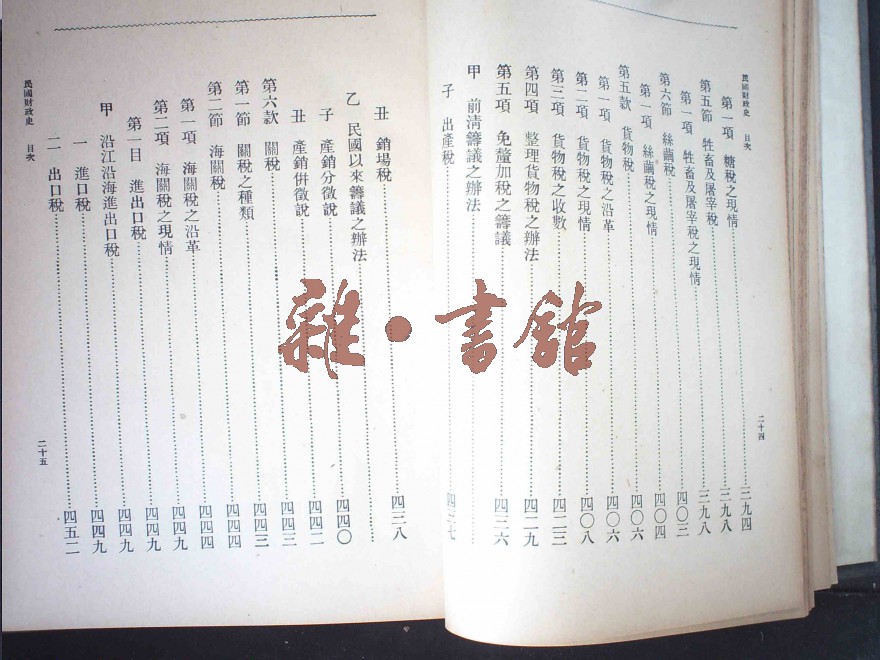 民國財政史 目次
第一項 糖稅之現情 三九四
第五節 牲畜及屠宰稅 三九八
第一項 牲畜及屠宰稅之現情 三九八
第六節 絲繭稅 四〇三
第一項 絲繭稅之現情 四〇四
第五款 貨物稅 四〇六
第一項 貨物稅之沿革 四〇六
第二項 貨物稅之現情 四〇八
第三項 貨物稅之收數 四二三
第四項 整理貨物稅之辦法 四二九
第五項 免釐加稅之籌議 四三六
甲 前清籌議之辦法
子 出產稅 四三七
二十四
丑 銷場稅 四三八
乙 民國以來籌議之辦法
子 產銷分徵說 四四〇
丑 產銷併徵說 四四二
第六款 關稅 四四三
第一節 關稅之種類 四四三
第二節 海關稅 四四四
第一項 海關稅之沿革 四四四
第二項 海關稅之現情 四四九
第一目 進出口稅 四四九
甲 沿江沿海進出口稅 四四九
一 進口稅 四四九
二 出口稅 四五二
民國財政史 目次
二十五
雜·書館